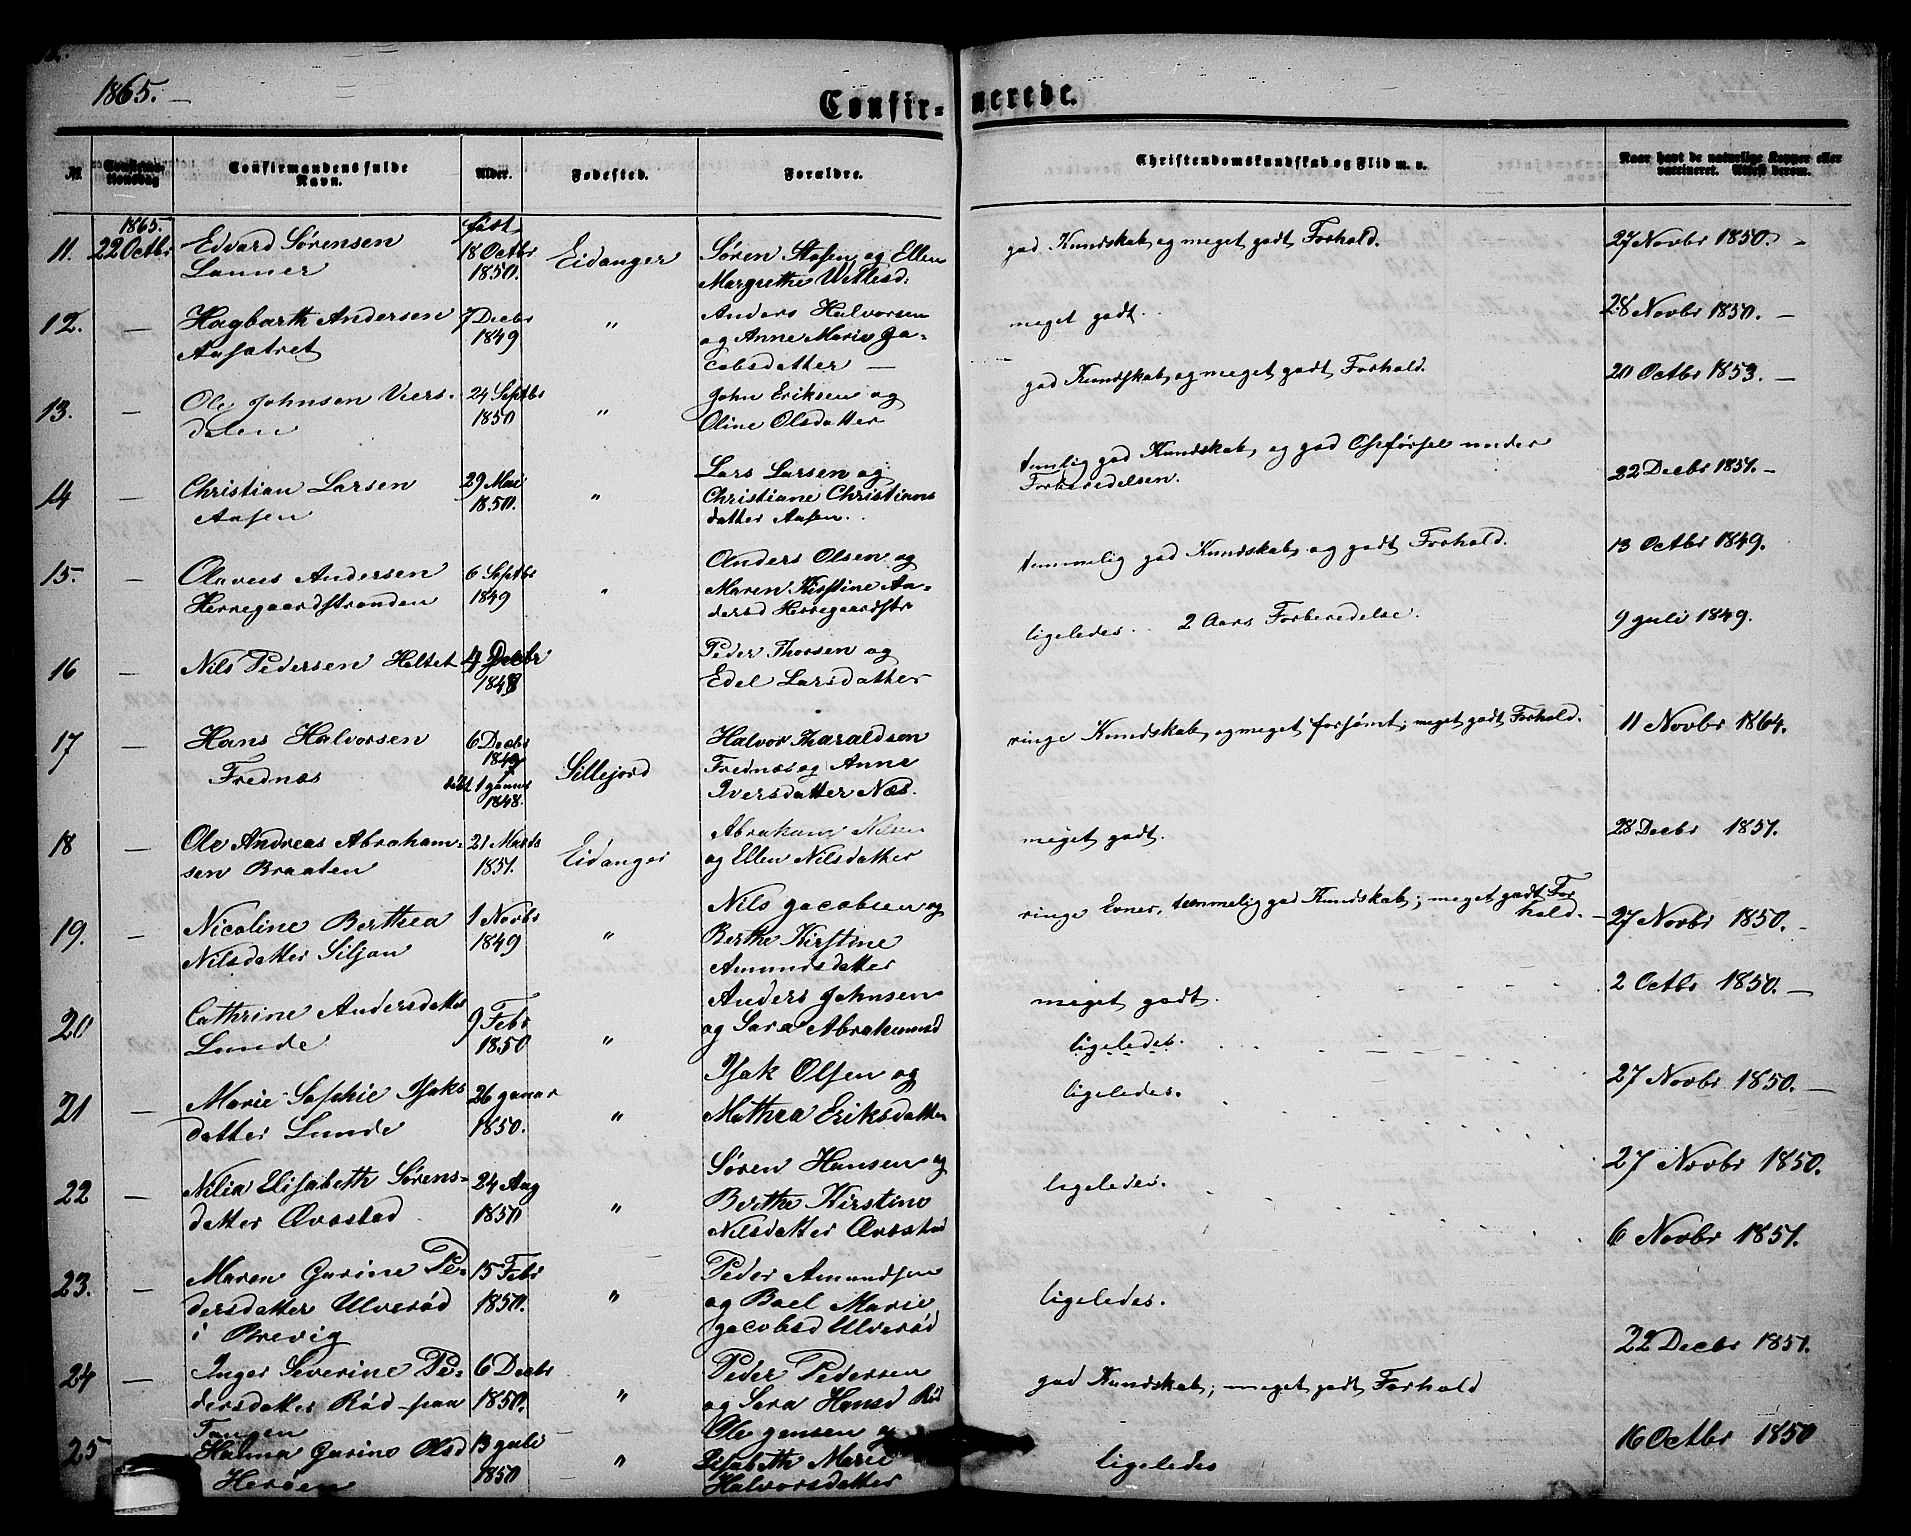 1865. —
Confir-
merede.
№
Confirma-
tionsdag
Confirmandens fulde
Navn.
Alder.
Fødested.
Forældre.
Christendomskundskab og Flid m. v.
Naar havt de naturlige Kopper eller
vaccineret. Attest derom.
1865.
født
11. 22 Octbr Edvard Sørensen 18 Octbr Eidanger Søren Stafsen og Ellen god Kundskab og meget godt Forhold. 27 Novbr 1850. —
Lanner 1850. Margrethe
12. — Hagbarth Andersen 7 Decbr " Anders Halvorsen meget godt. 28 Novbr 1850. —
1849 og Anne Marie Ja-
cobsdatter —
13. — Ole Johnsen Viers- 24 Septbr " John Eriksen og god Kundskab og meget godt Forhold. 20 Octbr 1853. —
dalen 1850 Oline Olsdatter
14 — Christian Larsen 29 Mai " Lars Larsen og temlig god Kundskab og god Opførsel under 22 Decbr 1851. —
Aasen 1850. Christiane Christians Forberedelsen.
datter Aasen.
15. — Olaves Andersen 6 Septbr " Anders Olsen og temmelig god Kundskab og godt Forhold. 13 Octbr 1849.
Herregaardstranden 1849 Maren Kirstine An-
dersd Herregaardstr
16 — Nils Pedersen Heltet 4 Decbr Peder Thorsen og ligeledes. 2 Aars Forberedelse. 9 Juli 1849.
1848 Edel Larsdatter
17 — Hans Halvorsen 6 Decbr Sillejord Halvor Tharaldsen ringe Kundskab og meget forsømt; meget godt Forhold. 11 Novbr 1864.
Frednæs 1849 Frednæs og Anne
1848. Iversdatter Næs.
18 — Ole Andreas Abraham- 21 Marts Eidanger Abraham Nilsen meget godt. 28 Decbr 1851.
sen Braaten 1851. og Ellen Nilsdatter
19. — Nicoline Berthea 1 Novbr " Nils Jacobsen og ringe Evner, temmelig god Kundskab; meget godt For
hold. — 27 Novbr 1850.
Nilsdatter Siljan 1849 Berthe Kirstine
Amundsdatter
20 Cathrine Andersdatter 9 Febr " Anders Johnsen meget godt. 2 Octbr 1850. —
Lunde 1850 og Sara Abrahamsd ligeledes.
21 — Marie Sophie Isaks 26 Januar " Isak Olsen og ligeledes. 27 Novbr 1850. —
datter Lunde 1850. Mathea Eriksdatter
22 — Nilia Elisabeth Sørens- 24 Aug " Søren Hansen og ligeledes. 27 Novbr 1850.
datter Ørstad 1850 Berthe Kirstine
Nilsdatter
23. — Maren Gurine Pe- 15 Febr " Peder Amundsen ligeledes. 6 Novbr 1851.
dersdatter Ulverød 1850. og Boel Marie
i Brevig Jacobsd Ulverød
24 — Inger Severine Pe- 6 Decbr " Peder Pedersen god Kundskab; meget godt Forhold 22 Decbr 1851.
dersdatter Rød paa 1850. og Sara Hansd Rød
Tangen
25 Halma Gurine Olsd 13 Juli " Ole Jensen og ligeledes 16 Octbr 1850
Herøen 1850 — Elisabeth Marie
Halvorsdatter